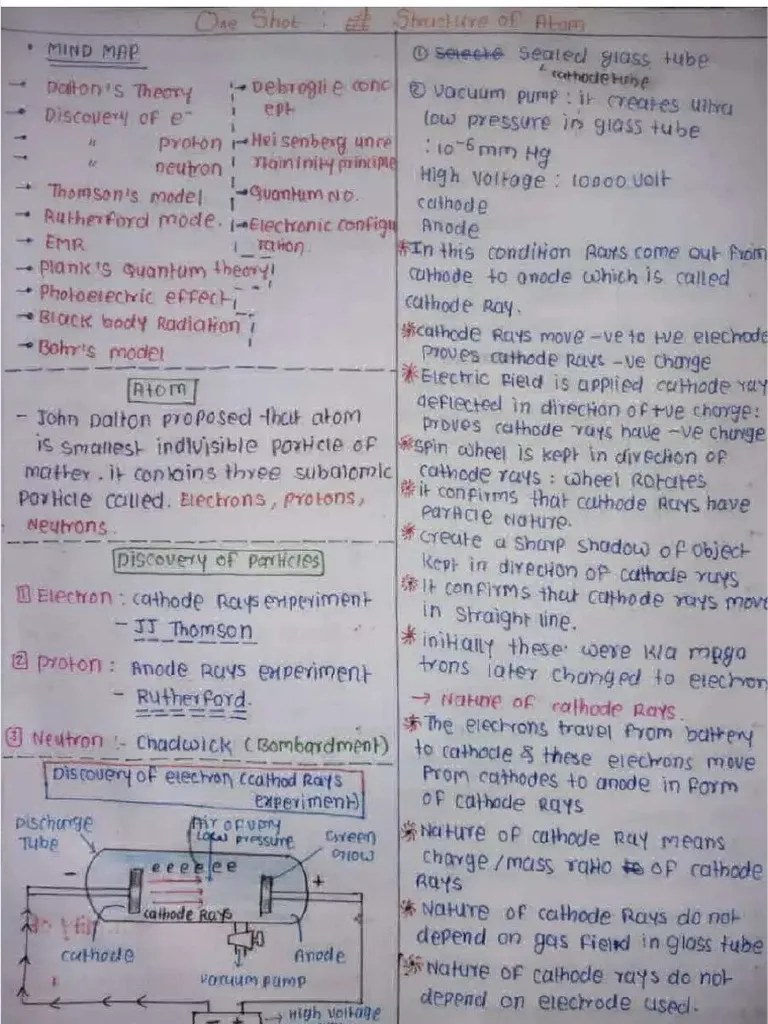 One Shot : # Structure of Atom
• MIND MAP
→ Dalton's Theory
→ Discovery of e⁻
→ " proton
→ " neutron
→ Thomson's model
→ Rutherford mode.
→ EMR
→ Plank's Quantum theory
→ Photoelectric effect
→ Black body Radiation
→ Bohr's model
→ Debroglie conc
ept
→ Heisenberg unce
rtaininity principle
→ Quantum No.
→ Electronic configu
ration.
Atom
- John Dalton proposed that atom
is smallest indivisible particle of
matter. it contains three subatomic
particle called. Electrons, protons,
Neutrons.
Discovery of Particles
1 Electron : cathode Rays experiment
- JJ Thomson
2 Proton : Anode Rays experiment
- Rutherford.
3 Neutron :- Chadwick (Bombardment)
Discovery of electron (cathod Rays
experiment)
Discharge
Tube
Air of very
low pressure
Green
Glow
- e e e e e e +
cathode Rays
cathode
Anode
vacuum pump
- +
→ High voltage
① Selecte Sealed glass tube
cathode tube
② vacuum pump : it creates ultra
low pressure in glass tube
: 10⁻⁶ mm Hg
High voltage : 10000 volt
cathode
Anode
* In this condition Rays come out from
cathode to anode which is called
cathode Ray.
* cathode Rays move -ve to +ve electrode
proves cathode Rays -ve charge
* Electric Field is applied cathode ray
deflected in direction of +ve charge:
proves cathode rays have -ve charge
* spin wheel is kept in direction of
cathode rays : wheel Rotates
* it confirms that cathode Rays have
particle Nature.
* create a sharp shadow of object
kept in direction of cathode rays
* It confirms that cathode rays move
in straight line.
* initially these were k/a
trons later changed to electron
→ Nature of cathode Rays.
* The electrons travel from battery
to cathode & these electrons move
from cathodes to anode in form
of cathode Rays
* Nature of cathode Ray means
charge/mass ratio of cathode
Rays
* Nature of cathode Rays do not
depend on gas field in glass tube
* Nature of cathode rays do not
depend on electrode used.